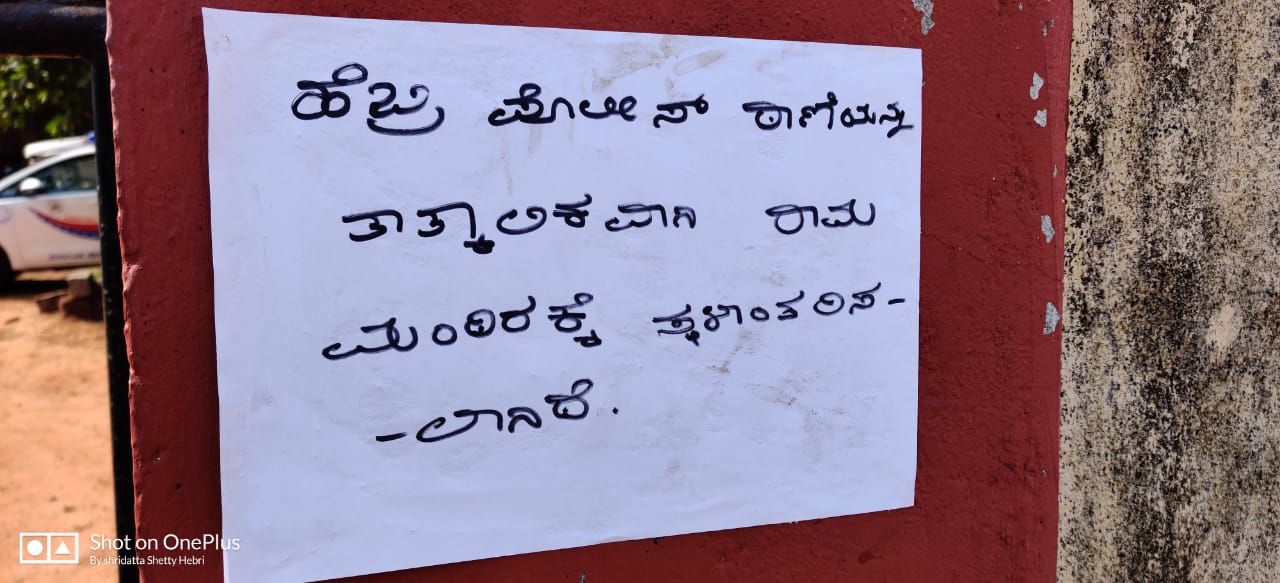 ಹೆಬ್ರಿ ಪೋಲೀಸ್ ಠಾಣೆಯನ್ನು
ತಾತ್ಕಾಲಿಕವಾಗಿ ರಾಮ
ಮಂದಿರಕ್ಕೆ ಸ್ಥಳಾಂತರಿಸ-
-ಲಾಗಿದೆ.
Shot on OnePlus
By shridatta Shetty Hebri